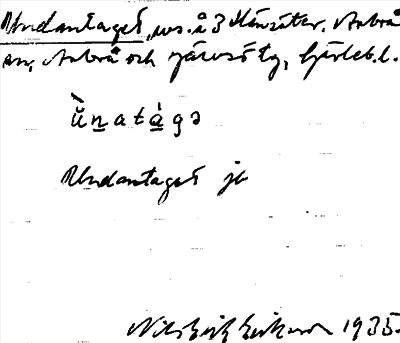 Undantaget, ws. å 3 Hånsäter, Arbrå
sn, Arbrå och Järvsö tg, Gävleb. l.
ùn̲atà̲gə
Undantaget jb
Nils Erik Eriksson 1935